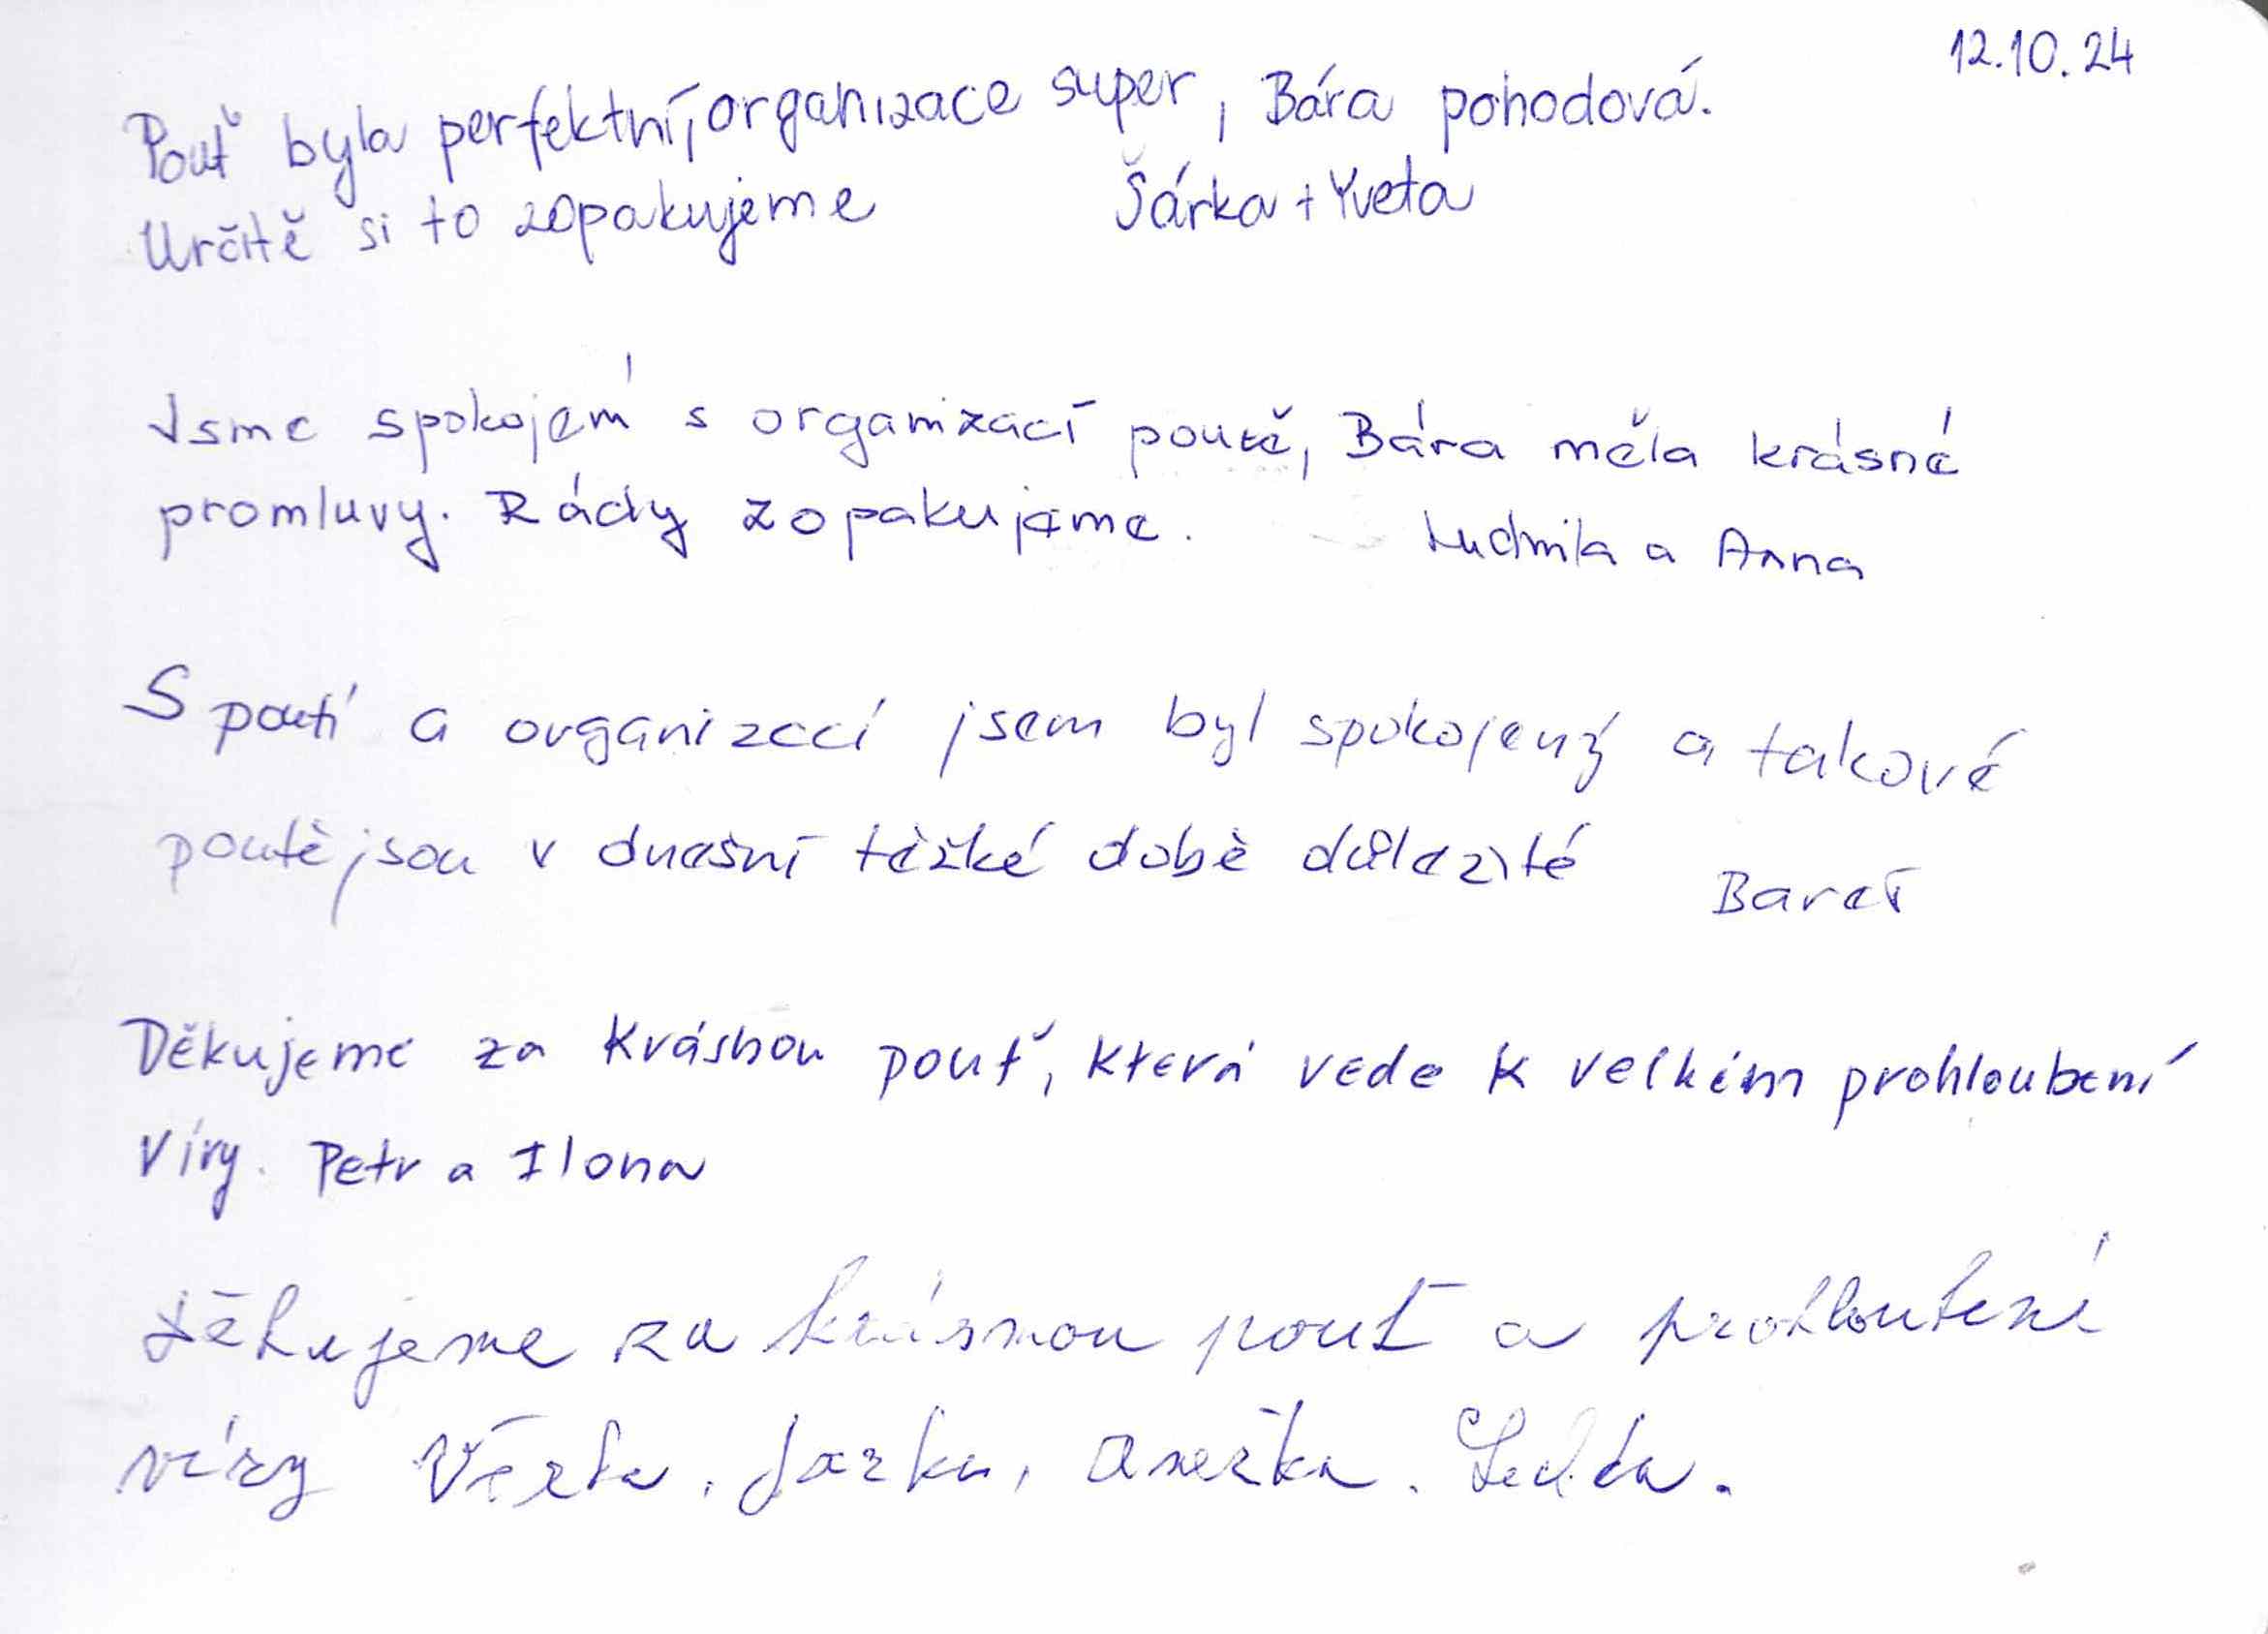 12.10.24
Pouť byla perfektní, organizace super, Bára pohodová.
Určitě si to zopakujeme Šárka + Yveta
Jsme spokojení s organizací poutě, Bára měla krásné
promluvy. Rády zopakujeme. Ludmila a Anna
S poutí a organizací jsem byl spokojený a takové
poutě jsou v dnešní těžké době důležité
Děkujeme za krásnou pouť, která vede k velkém prohloubení
víry. Petr a Ilona
děkujeme za krásnou pouť a prohloubení
víry Věrka, Jarka, Anežka.